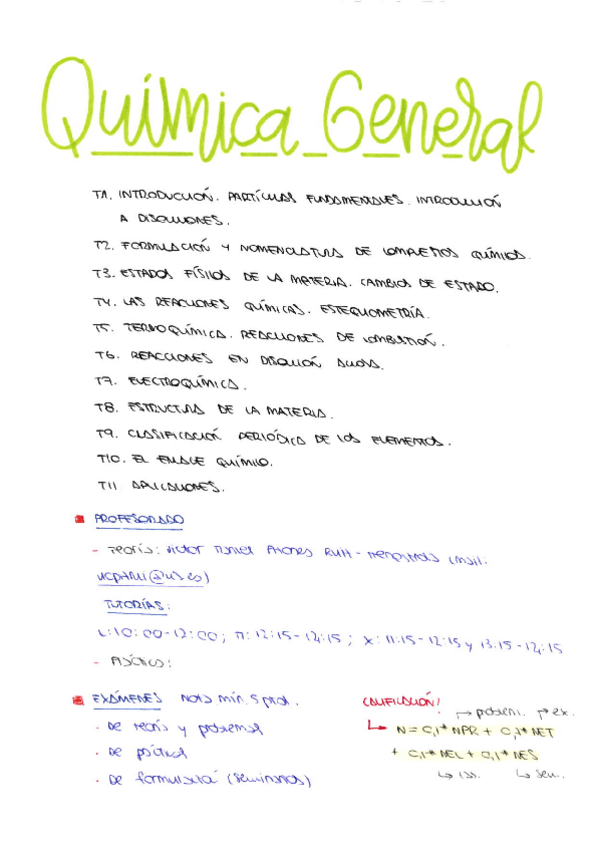 Química General
T1. INTRODUCCIÓN. PARTÍCULAS FUNDAMENTALES. INTRODUCCIÓN
A DISOLUCIONES.
T2. FORMULACIÓN Y NOMENCLATURA DE COMPUESTOS QUÍMICOS.
T3. ESTADOS FÍSICOS DE LA MATERIA. CAMBIOS DE ESTADO.
T4. LAS REACCIONES QUÍMICAS. ESTEQUIOMETRÍA.
T5. TERMOQUÍMICA. REACCIONES DE COMBUSTIÓN.
T6. REACCIONES EN DISOLUCIÓN ACUOSA.
T7. ELECTROQUÍMICA.
T8. ESTRUCTURA DE LA MATERIA.
T9. CLASIFICACIÓN PERIÓDICA DE LOS ELEMENTOS.
T10. EL ENLACE QUÍMICO.
T11 APLICACIONES.
PROFESORADO
- TEORÍA: VICTOR (mail:
@us.es)
TUTORÍAS:
L: 10:00-12:00; M: 12:15-14:15; X: 11:15-12:15 y 13:15-14:15
- PRÁCTICO:
EXÁMENES NOTA MÍN. 5 
- DE TEORÍA Y PROBLEMAS
- DE PRÁCTICAS
- DE FORMULACIÓN (SEMINARIOS)
CALIFICACIÓN!
→ problem. → ex.
N = 0,1* NPR + 0,7* NET
+ 0,1* NEL + 0,1* NES
↳ lab. ↳ sem.